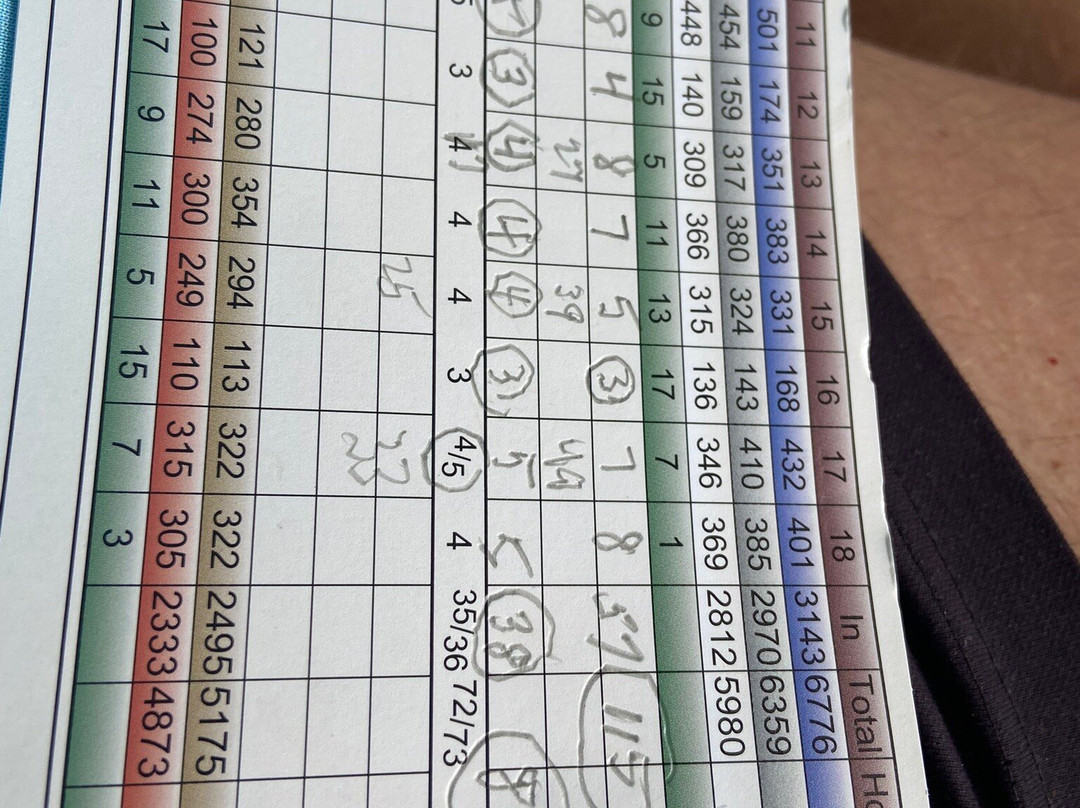 11 12 13 14 15 16 17 18 In Total
501 174 351 383 331 168 432 401 3143 6776
454 159 317 380 324 143 410 385 2970 6359
448 140 309 366 315 136 346 369 2812 5980
9 15 5 11 13 17 7 1
8 4 8 7 5 3 7 8 57 115
27 39 49
3 4 4 4 3 5 5 38 8
3 4 4 4 3 4/5 4 35/36 72/73
25 33
33
121 280 354 294 113 322 322 2495 5175
100 274 300 249 110 315 305 2333 4873
17 9 11 5 15 7 3